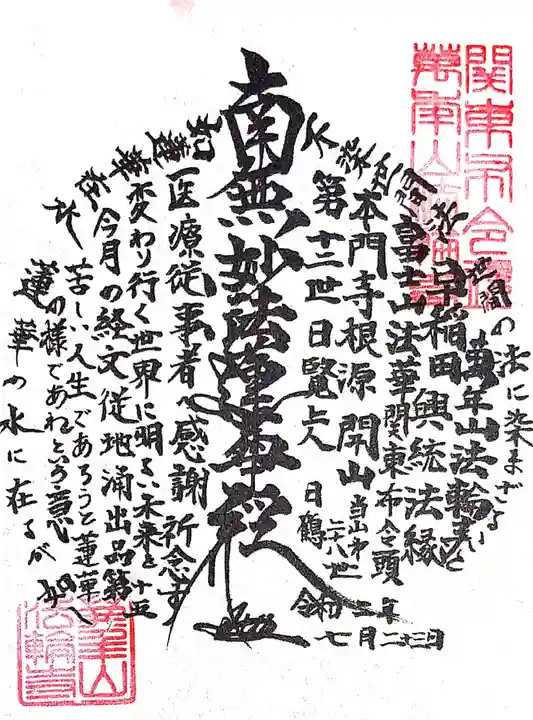 関東布令
萬年山
不染世間法
如蓮華在水
世間の法に染まざること
蓮華の水に在るが如し
萬年山法輪寺
早稲田興統法縁
富士山法華関東布令頭
本門寺根源 開山
当山第二十八世
第十三世日覧上人 日鶴
南無妙法蓮華経
医療従事者へ感謝 祈念す
変わり行く世界に明るい未来を
今月の経文従地涌出品第十五
苦しい人生であろうと蓮華
の様であれという意
令和二年
七月二十三日
萬年山
法輪寺